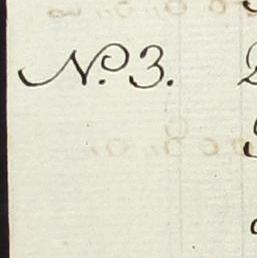 No. 3.